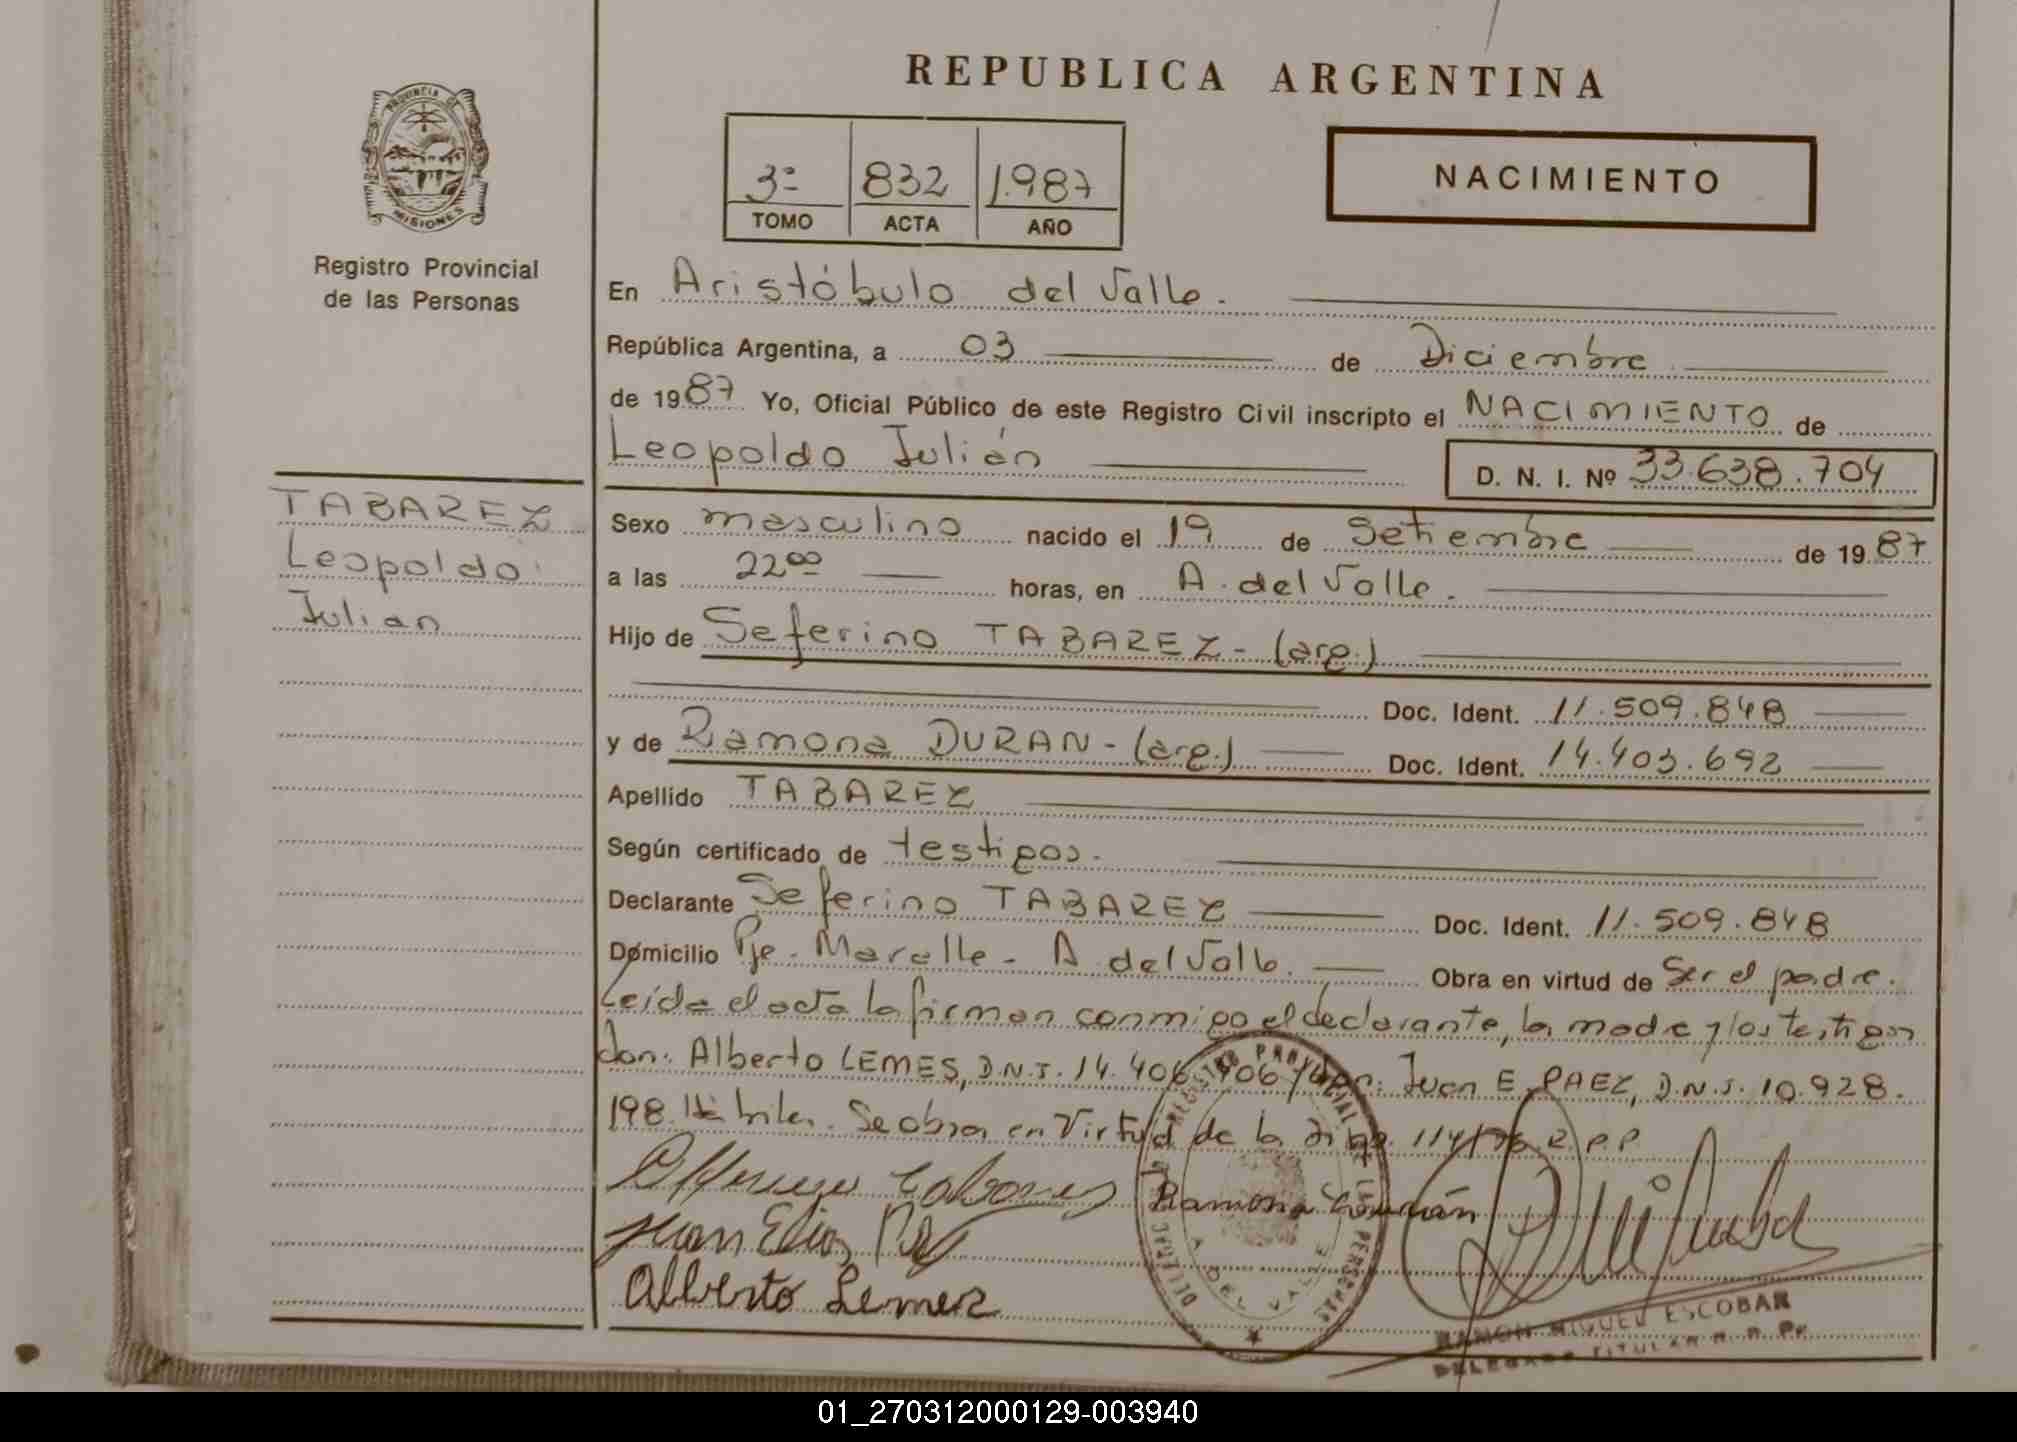 REPUBLICA ARGENTINA
PROVINCIA DE
MISIONES
Registro Provincial
de las Personas
3º 832 1.987
TOMO ACTA AÑO
NACIMIENTO
En Aristóbulo del Valle.
República Argentina, a 03 de Diciembre
de 1987 Yo, Oficial Público de este Registro Civil inscripto el NACIMIENTO de
Leopoldo Julián D. N. I. Nº 33.638.704
TABAREZ
Leopoldo
Julian
Sexo masculino nacido el 19 de Setiembre de 1987
a las 22⁰⁰ horas, en A. del Valle.
Hijo de Seferino TABAREZ - (arg.)
Doc. Ident. 11.509.848
y de Ramona DURAN - (arg.) Doc. Ident. 14.403.692
Apellido TABAREZ
Según certificado de testigos.
Declarante Seferino TABAREZ Doc. Ident. 11.509.848
Domicilio Pje. Maralle - A. del Valle. Obra en virtud de Ser el padre.
Leída el acta la firman conmigo el declarante, la madre y los testigos
don: Alberto LEMES, D.N.I. 14.406.706 y don: Juan E. PAEZ, D.N.I. 10.928.
198. Hábiles. Se obra en Virtud de la 114/76 R.P.P.
Ramona Durán
Juan Elias
Alberto Lemez
DELEGACION REGISTRO PROVINCIAL DE LAS PERSONAS
A. DEL VALLE
RAMON MIGUEL ESCOBAR
DELEGADO TITULAR R. P. P.
01_270312000129-003940